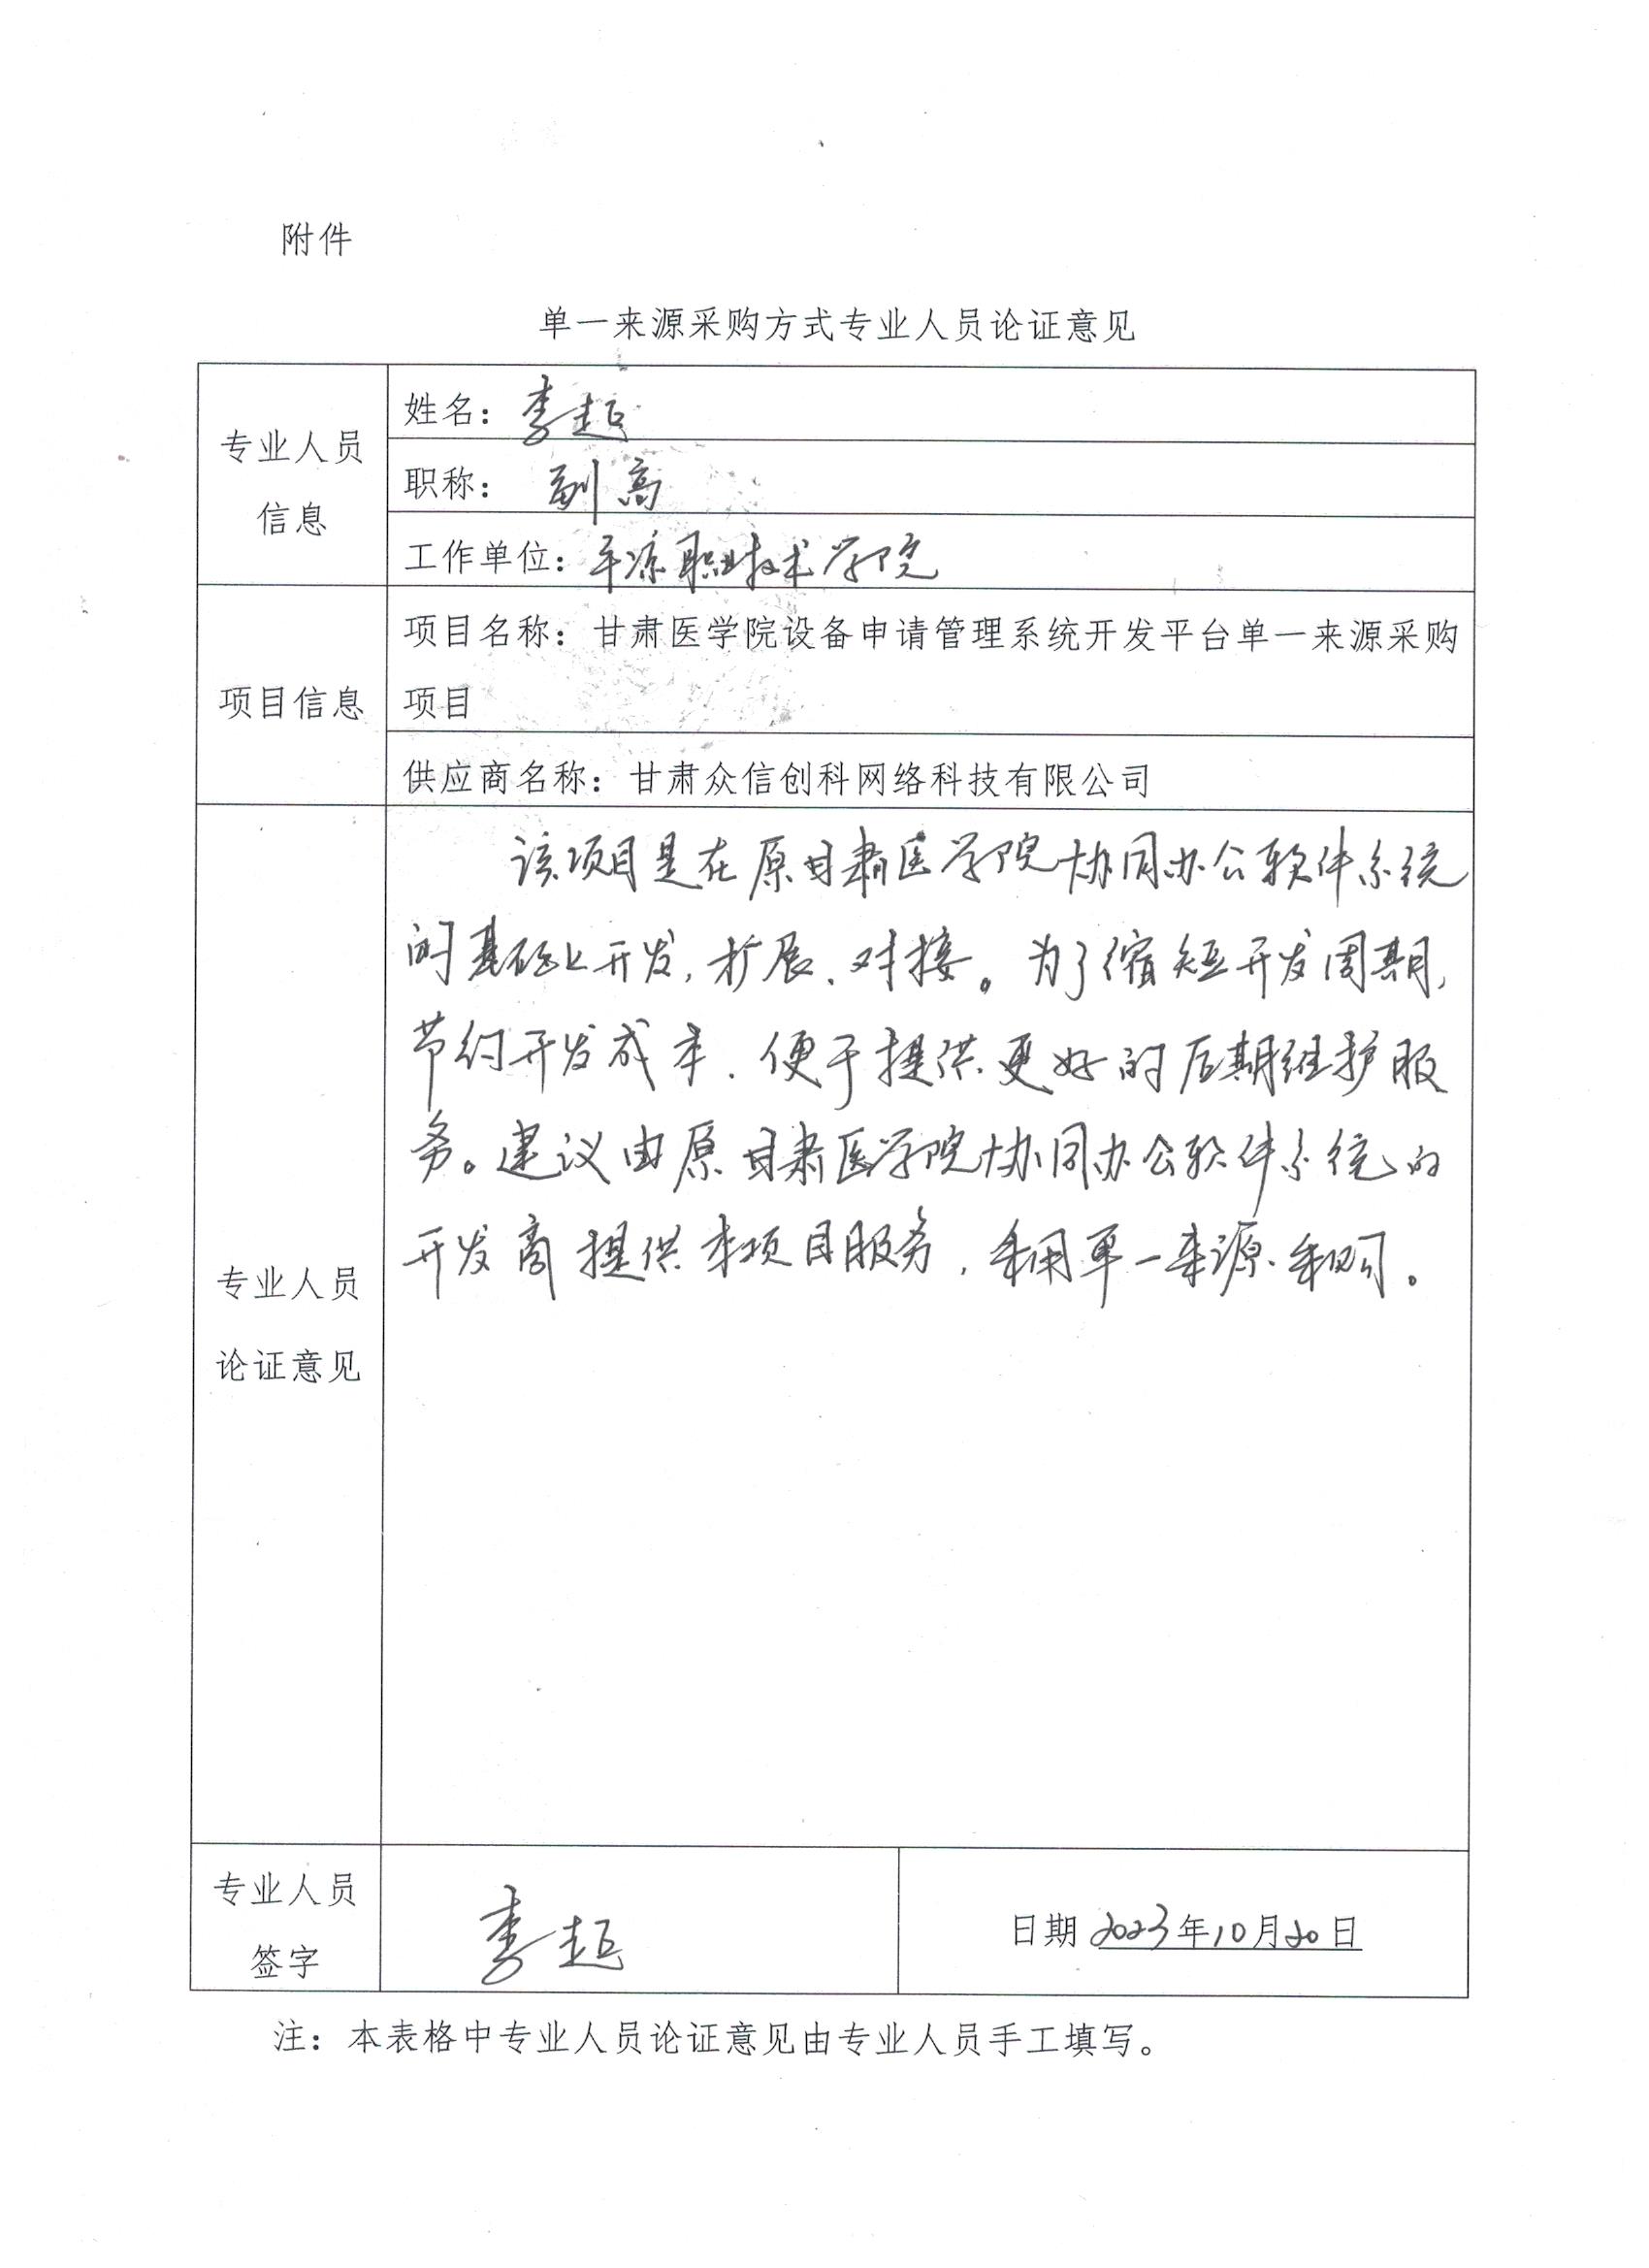 附件
单一来源采购方式专业人员论证意见
专业人员
信息
姓名：李超
职称：副高
工作单位：平凉职业技术学院
项目信息
项目名称：甘肃医学院设备申请管理系统开发平台单一来源采购
项目
供应商名称：甘肃众信创科网络科技有限公司
专业人员
论证意见
该项目是在原甘肃医学院协同办公软件系统
的基础上开发，扩展、对接。为了缩短开发周期，
节约开发成本、便于提供更好的后期维护服
务。建议由原甘肃医学院协同办公软件系统的
开发商提供本项目服务，采用单一来源采购。
专业人员
签字
李超
日期 2023年10月20日
注：本表格中专业人员论证意见由专业人员手工填写。